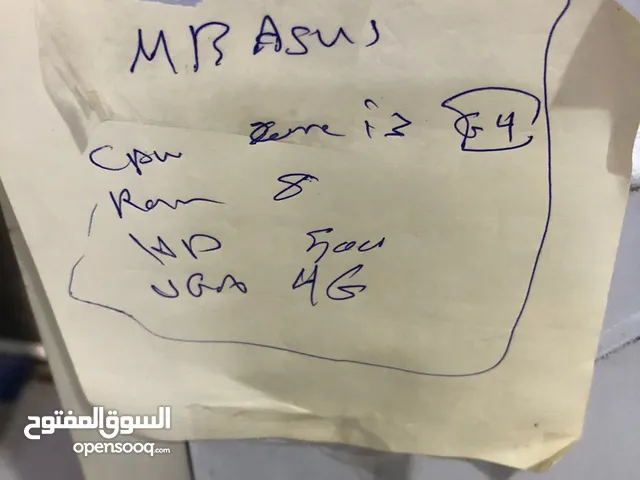 MB ASUS
CPU core i3 G4
Ram 8
HD 500
VGA 4G
السوق المفتوح
opensooq.com